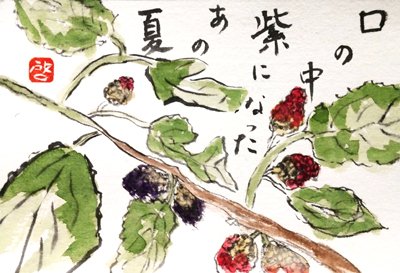 口の中
紫になった
あの
夏
啓